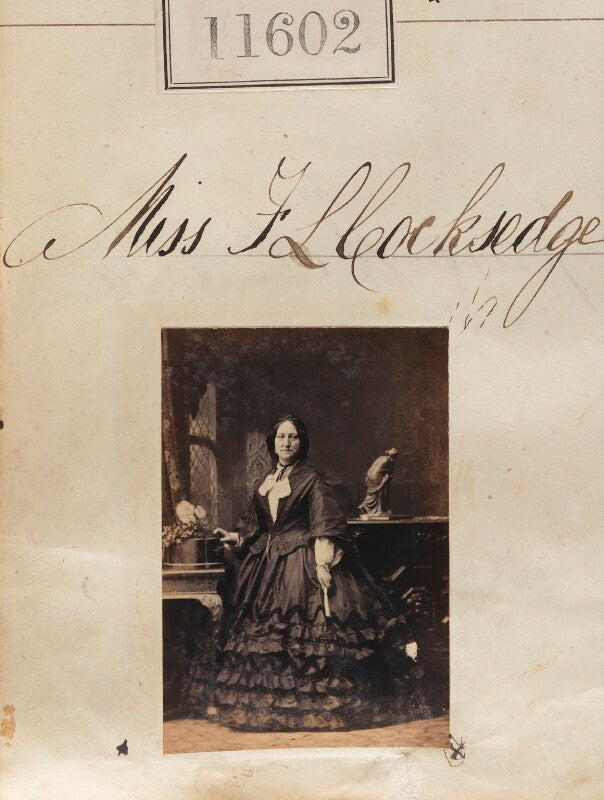 11602
Miss F L Cocksedge